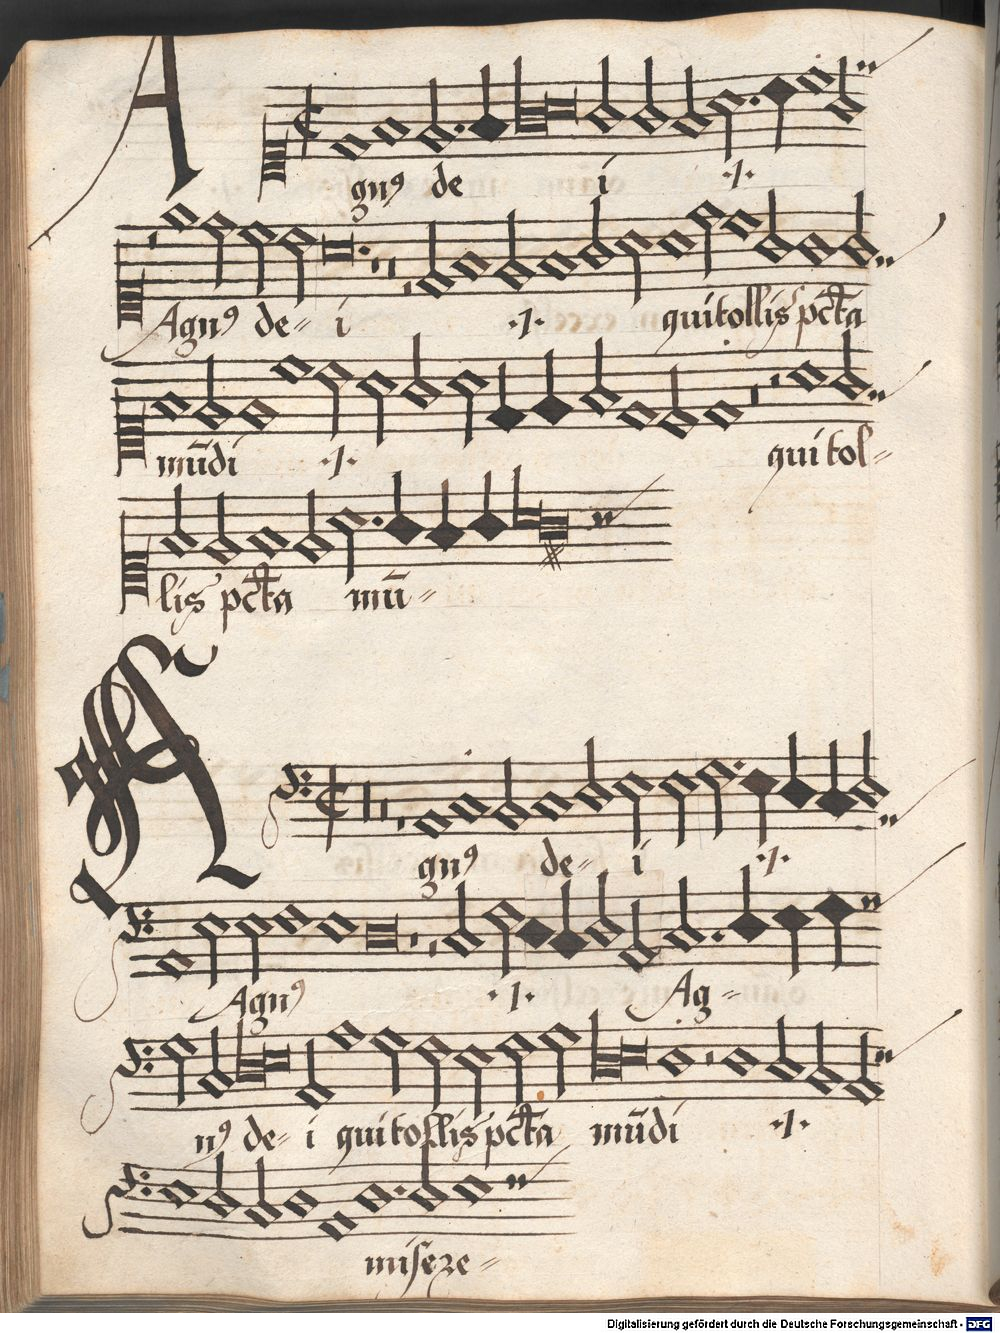 A
gnꝰ de i ·/·
Agnꝰ de= i ·/· qui tollis pc̄ta
mūdi ·/· qui tol=
lis pc̄ta mū=
A
gnꝰ de= i ·/·
Agnꝰ ·/· Ag=
nꝰ de= i qui tollis pc̄ta mūdi ·/·
misere=
Digitalisierung gefördert durch die Deutsche Forschungsgemeinschaft - DFG